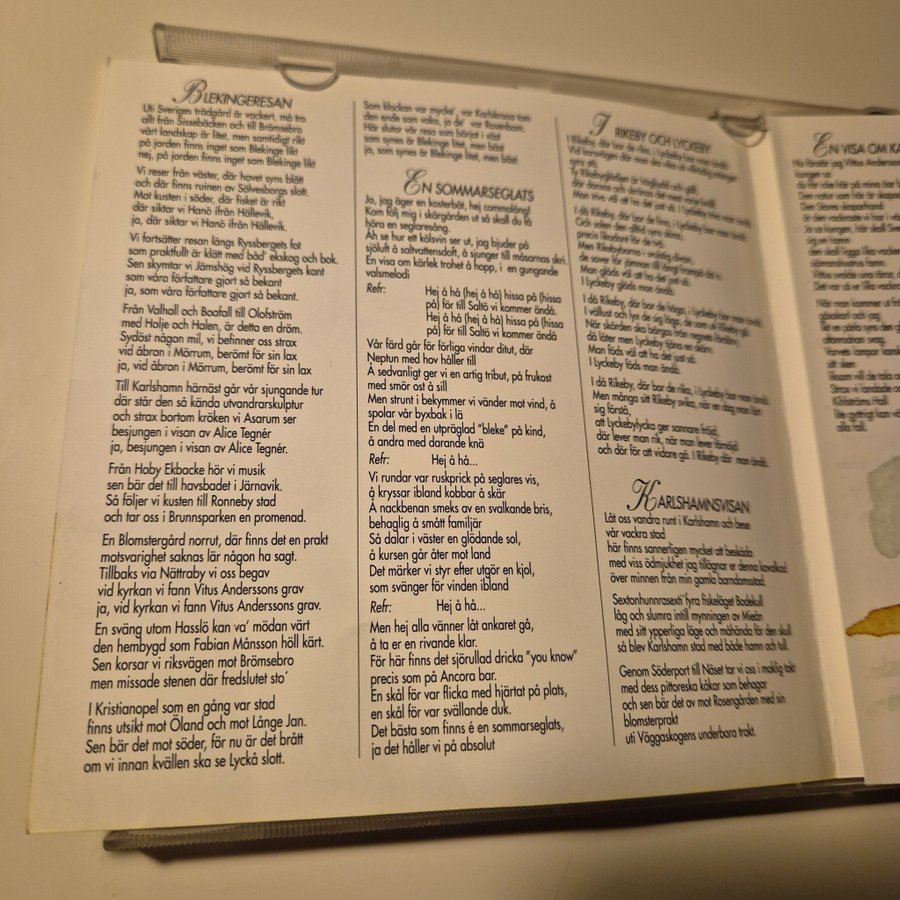 BLEKINGERESAN
Uti Sveriges trädgård är vackert, må tro
allt från Sissebäcken och till Brömsebro
vårt landskap är litet, men samtidigt rikt
på jorden finns inget som Blekinge likt
nej, på jorden finns inget som Blekinge likt
Vi reser från väster, där havet syns blått
och där finns ruinen av Sölvesborgs slott.
Mot kusten i söder, där fisket är rikt
där siktar vi Hanö ifrån Hällevik.
ja, där siktar vi Hanö ifrån Hällevik.
Vi fortsätter resan längs Ryssbergets fot
som praktfullt är klätt med båd' ekskog och bok.
Sen skymtar vi Jämshög vid Ryssbergets kant
som våra författare gjort så bekant
ja, som våra författare gjort så bekant.
Från Valhall och Boafall till Olofström
med Holje och Halen, är detta en dröm.
Sydöst någon mil, vi befinner oss strax
vid åbron i Mörrum, berömt för sin lax
ja, vid åbron i Mörrum, berömt för sin lax
Till Karlshamn härnäst går vår sjungande tur
där står den så kända utvandrarskulptur
och strax bortom kröken vi Asarum ser
besjungen i visan av Alice Tegnér
ja, besjungen i visan av Alice Tegnér.
Från Hoby Ekbacke hör vi musik
sen bär det till havsbadet i Järnavik.
Så följer vi kusten till Ronneby stad
och tar oss i Brunnsparken en promenad.
En Blomstergård norrut, där finns det en prakt
motsvarighet saknas lär någon ha sagt.
Tillbaks via Nättraby vi oss begav
vid kyrkan vi fann Vitus Anderssons grav
ja, vid kyrkan vi fann Vitus Anderssons grav.
En sväng utom Hasslö kan va' mödan värt
den hembygd som Fabian Månsson höll kärt.
Sen korsar vi riksvägen mot Brömsebro
men missade stenen där fredslutet sto´
I Kristianopel som en gång var stad
finns utsikt mot Öland och mot Långe Jan.
Sen bär det mot söder, för nu är det brått
om vi innan kvällen ska se Lyckå slott.
Som klockan var mycke', var Karlskrona tom
den ende som vaka, ja de' var Rosenbom.
Här slutar vår resa som börjat i väst
som synes är Blekinge litet, men bäst
ja, som synes är Blekinge litet, men bäst.
EN SOMMARSEGLATS
Ja, jag äger en kosterbåt, hej commolång!
Kom följ mig i skärgården ut så skall du få
höra en seglaresång.
Åh se hur ett kölsvin ser ut, jag bjuder på
sjöluft å saltvattensdoft, å sjunger till måsarnas skri.
En visa om kärlek trohet å hopp, i en gungande
valsmelodi
Refr: Hej å hå (hej å hå) hissa på (hissa
på) för till Saltö vi kommer ändå.
Hej å hå (hej å hå) hissa på (hissa
på) för till Saltö vi kommer ändå
Vår färd går för förliga vindar ditut, där
Neptun med hov håller till
Å sedvanligt ger vi en artig tribut, på frukost
med smör ost å sill
Men strunt i bekymmer vi vänder mot vind, å
spolar vår byxbak i lä
En del med en utpräglad "bleke" på kind,
å andra med darande knä
Refr: Hej å hå...
Vi rundar var ruskprick på seglares vis,
å kryssar ibland kobbar å skär
Å nackbenan smeks av en svalkande bris,
behaglig å smått familjär
Så dalar i väster en glödande sol,
å kursen går åter mot land
Det märker vi styr efter utgör en kjol,
som svänger för vinden ibland
Refr: Hej å hå...
Men hej alla vänner låt ankaret gå,
å ta er en rivande klar.
För här finns det sjörullad dricka "you know"
precis som på Ancora bar.
En skål för var flicka med hjärtat på plats,
en skål för var svällande duk.
Det bästa som finns é en sommarseglats,
ja det håller vi på absolut
I RIKEBY OCH LYCKEBY
I Rikeby, där bor de rika, i Lyckeby bor man ändå.
syns då.
I då Rikeby, där bor de fina, i Lyckeby bor man ändå.
Och solen den alltid syns skina,
precis likadant för de två.
Men Rikebyborna i sniktig divan,
Man gläds väl att ha det just så.
I Lyckeby gläds man ändå.
I då Rikeby, där bor de höga, i Lyckeby bor man ändå.
I vällust och lyx de sig löga, de som uti Rikeby gå.
När skörden ska bärgas från regnets fördärv,
då låter men Lyckeby tjäna en skärv.
Man föds väl att ha det just så.
I Lyckeby föds man ändå.
I då Rikeby, där bor de rika, i Lyckeby bor man ändå.
Men många sitt Rikeby svika, när en dag man lärt
sig förstå,
att Lyckebylycka ger sannare fröjd,
där lever man rik, när man lever förnöjd
och dör för att vidare gå. I Rikeby där man ändå.
KARLSHAMNSVISAN
Låt oss vandra runt i Karlshamn och bese
vår vackra stad
här finns sannerligen mycket att beskåda
med viss ödmjukhet jag tillägnar er denna kavalkad
över minnen från min gamla barndomsstad.
Sextonhunnrasexti´fyra fiskeläget Bodekull
låg och slumra intill mynningen av Mieån
med sitt ypperliga läge och måhända för den skull
så blev Karlshamn stad med både hamn och tull.
Genom Söderport till Näset tar vi oss i maklig takt
med dess pittoreska kåkar som behagar
och sen bär det av mot Rosengården med sin
blomsterprakt
uti Väggaskogens underbara trakt.
EN VISA OM KA
Nu förstår jag Vitus Andersson